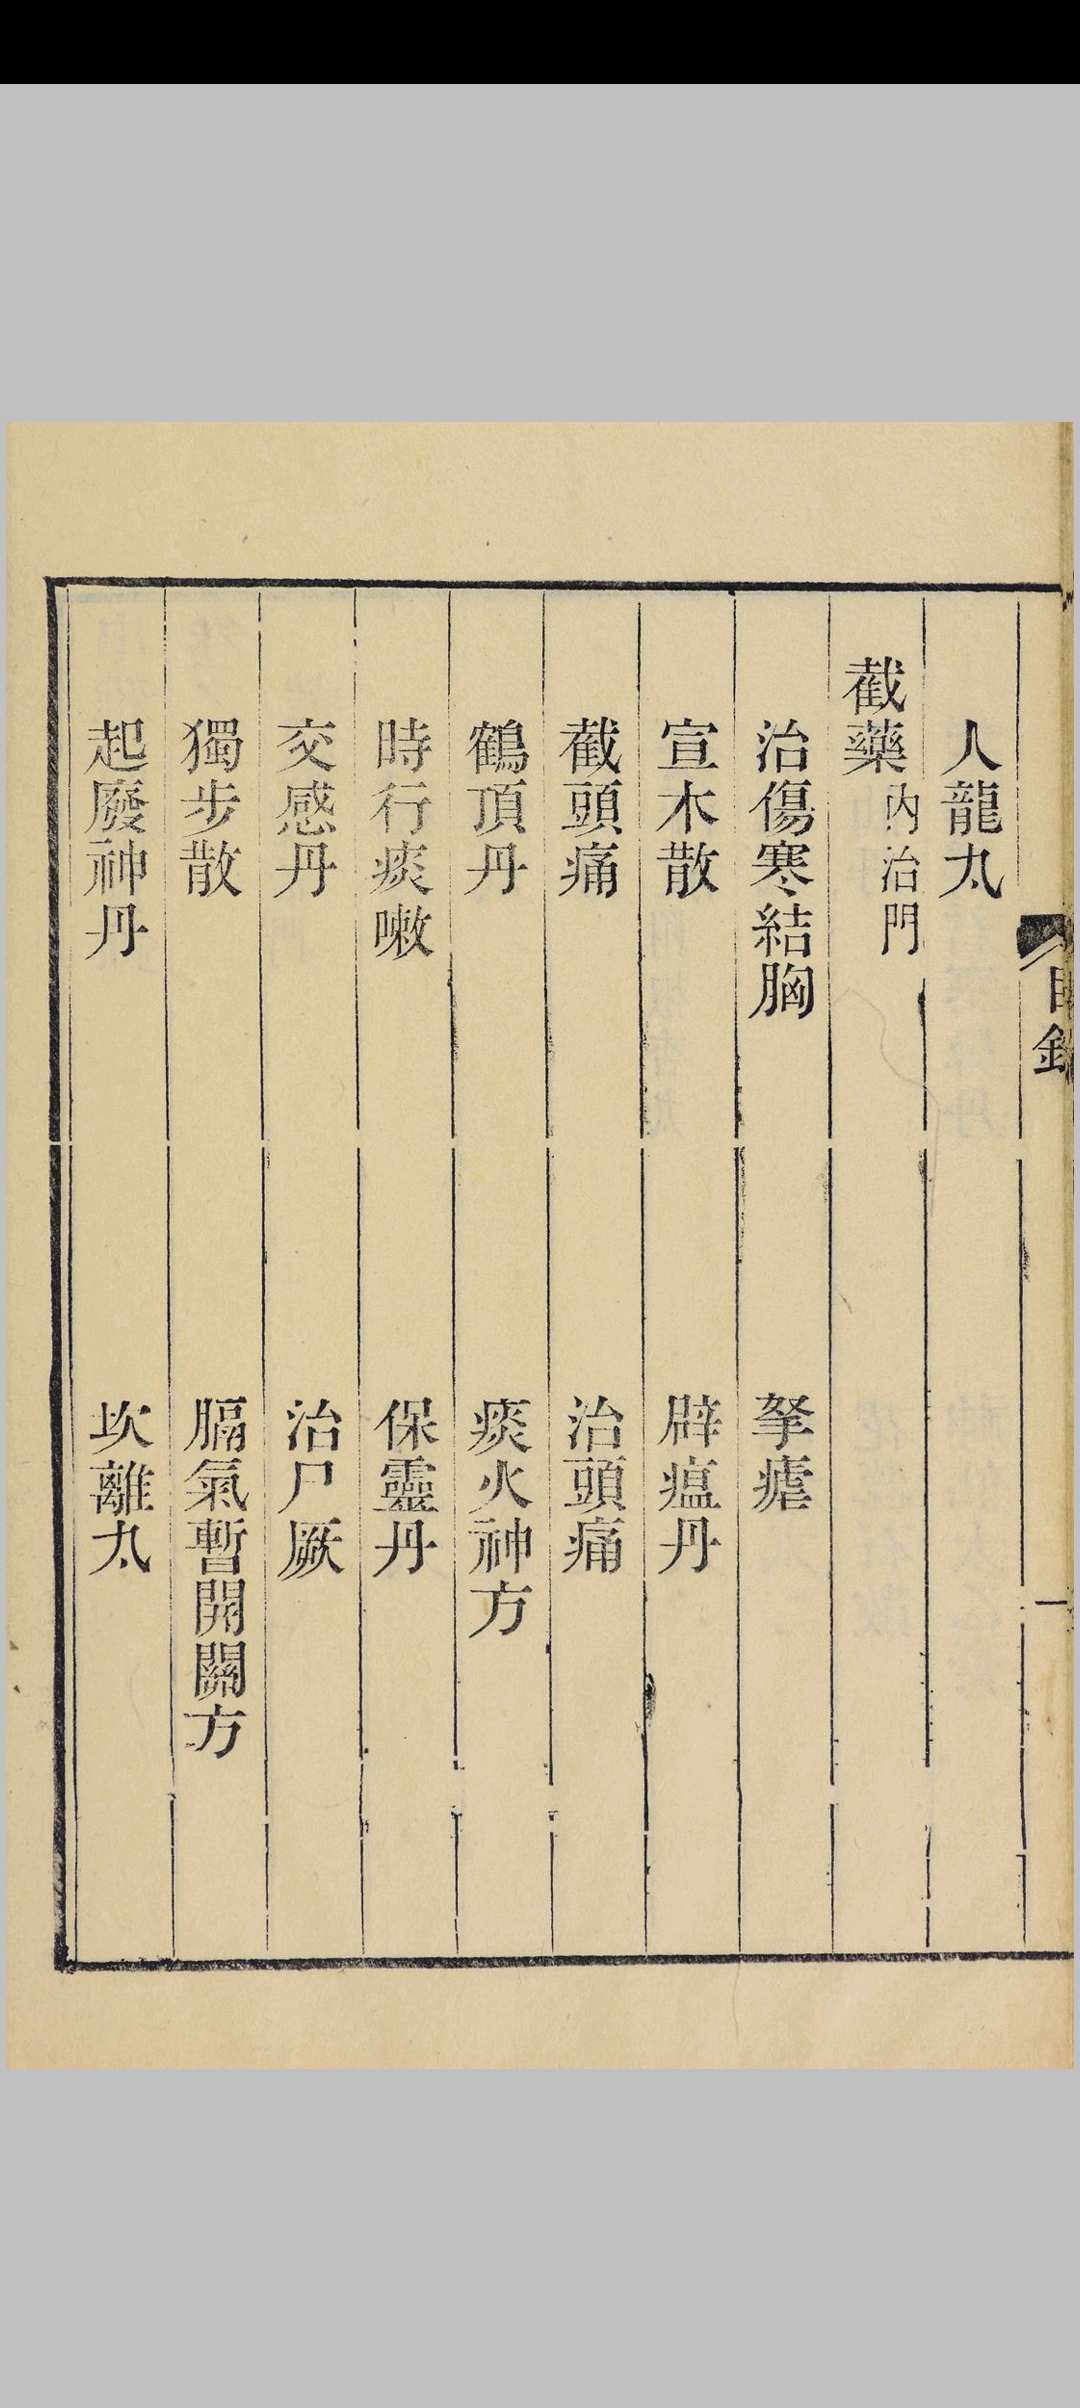 目錄 一
人龍丸
截藥 內治門
治傷寒結胸 拏瘧
宣木散 辟瘟丹
截頭痛 治頭痛
鶴頂丹 痰火神方
時行痰嗽 保靈丹
交感丹 治尸厥
獨步散 膈氣暫開關方
起廢神丹 坎離丸